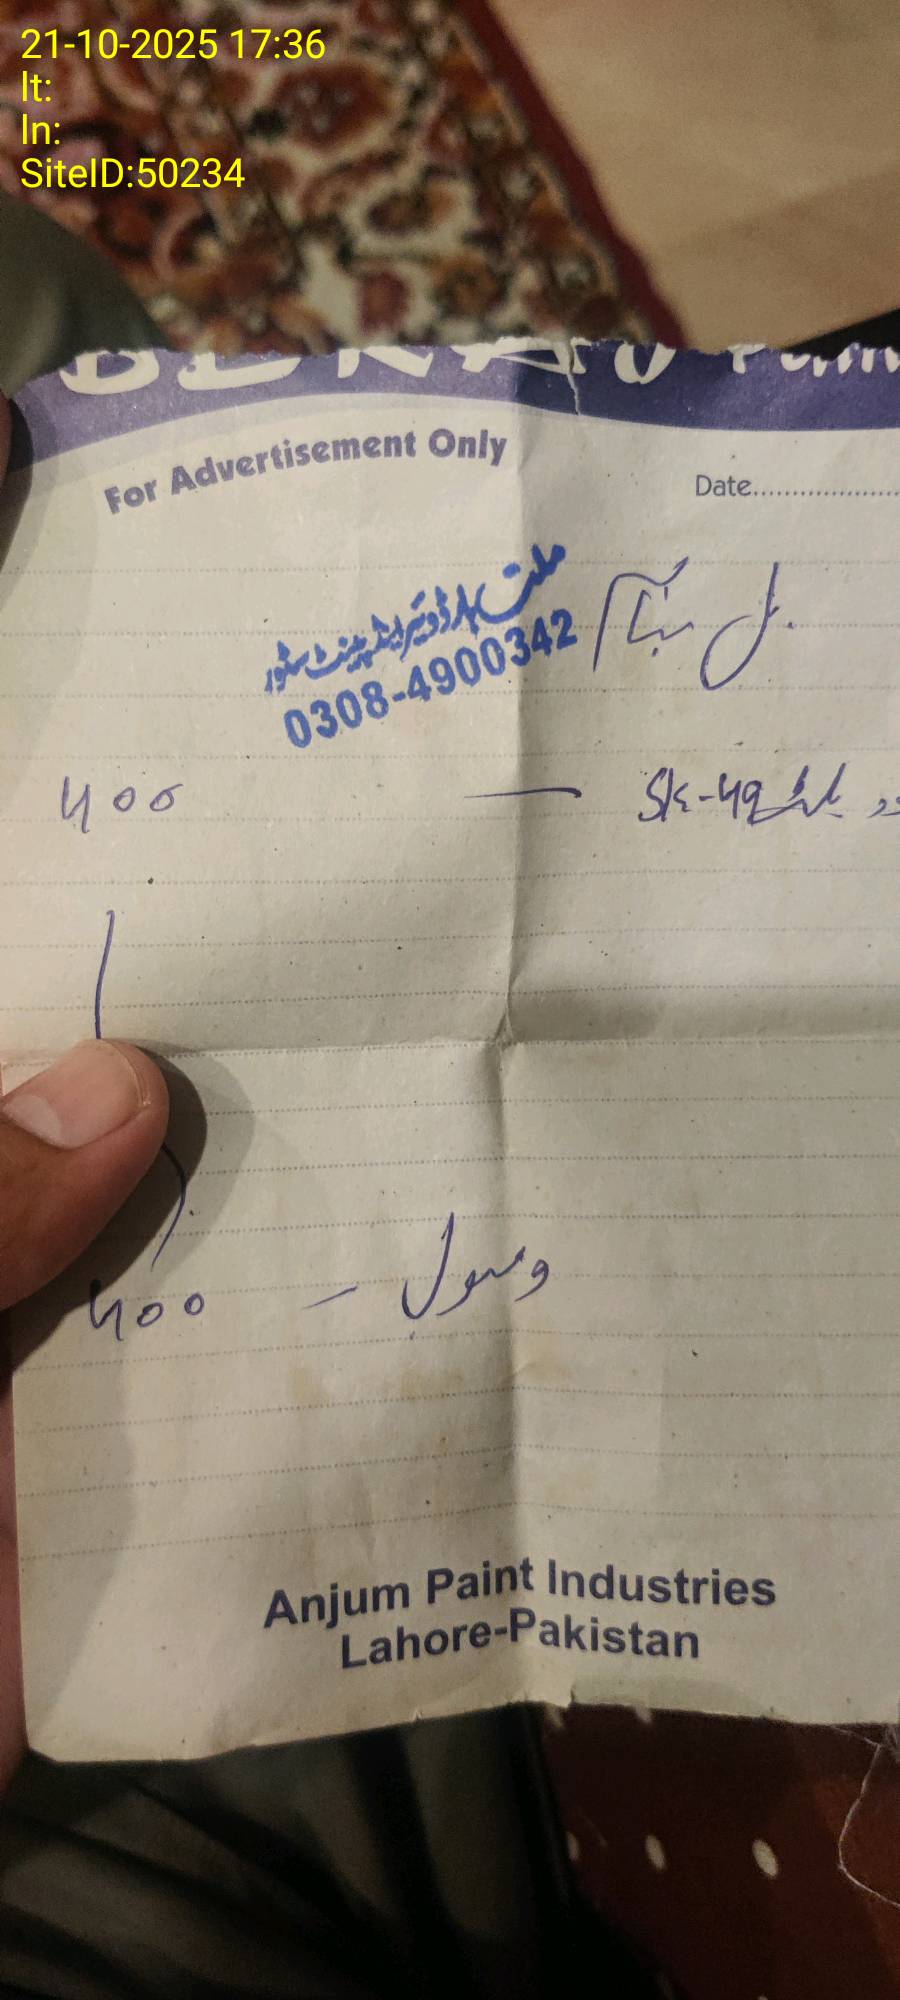 21-10-2025 17:36
lt:
ln:
SiteID:50234
For Advertisement Only
Date....................
ملت ہارڈویئر اینڈ پینٹ سٹور
0308-4900342
بل بنام
400 —
400 — وصول
Anjum Paint Industries
Lahore-Pakistan